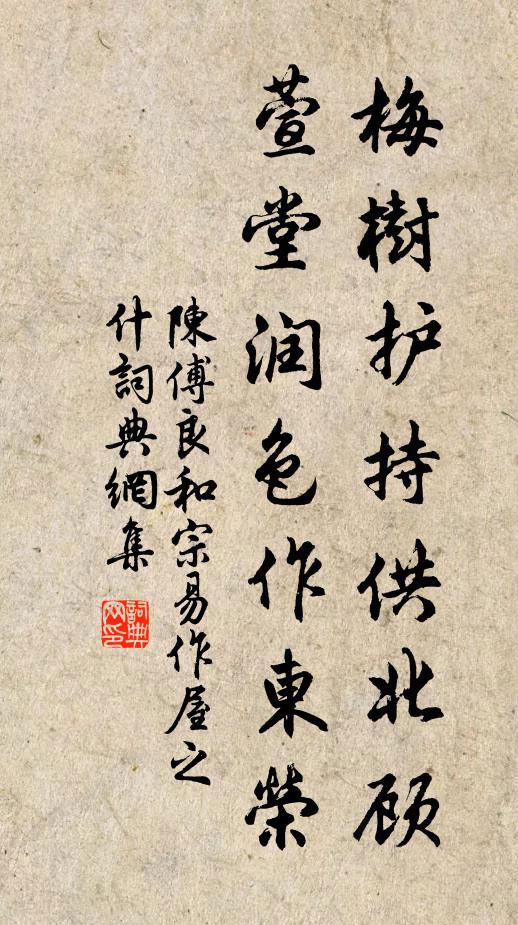 梅樹护持供北顾
萱堂润色作東榮
陳傅良和宗易作屋之
什詞典網集
詞典网印